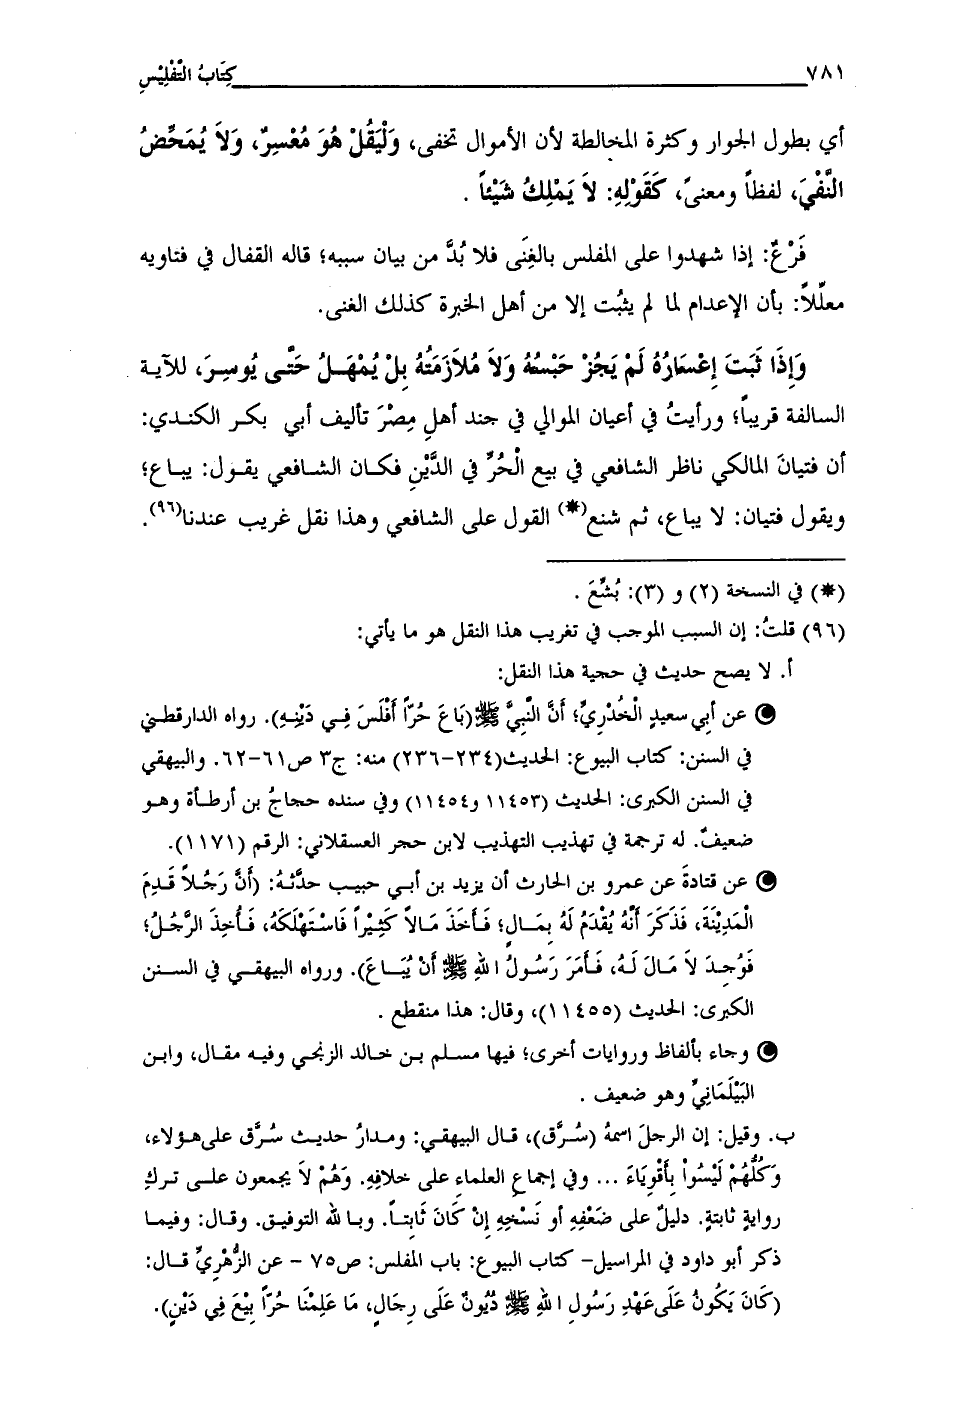 ٧٨١ كِتَابُ التَّفْلِيْسِ
أي بطول الجوار وكثرة المخالطة لأن الأموال تخفى، وَلْيَقُلْ هُوَ مُعْسِرٌ، وَلاَ يُمَحِّضُ
النَّفْيَ، لفظاً ومعنىً، كَقَوْلِهِ: لاَ يَمْلِكُ شَيْئاً .
فَرْعٌ: إذا شهدوا على المفلس بالغِنَى فلا بُدَّ من بيان سببه؛ قاله القفال في فتاويه
معلّلاً: بأن الإعدام لما لم يثبُت إلا من أهل الخبرة كذلك الغنى.
وَإِذَا ثَبَتَ إِعْسَارُهُ لَمْ يَجُزْ حَبْسُهُ وَلاَ مُلاَزَمَتُهُ بلْ يُمْهَلُ حَتَّى يُوسِرَ، للآية
السالفة قريباً؛ ورأيتُ في أعيان الموالي في جند أهلِ مِصْرَ تأليف أبي بكر الكندي:
أن فتيانَ المالكي ناظر الشافعي في بيع الْحُرِّ في الدَّيْنِ فكان الشافعي يقول: يباع؛
ويقول فتيان: لا يباع، ثم شنع(*) القول على الشافعي وهذا نقل غريب عندنا(٩٦).
(*) في النسخة (٢) و (٣): بُشِّعَ .
(٩٦) قلتُ: إن السبب الموجب في تغريب هذا النقل هو ما يأتي:
أ. لا يصح حديث في حجية هذا النقل:
عن أبي سعيدٍ الْخُدْرِيِّ؛ أَنَّ النَّبِيَّ ﷺ (بَاعَ حُرّاً أَفْلَسَ فِي دَيْنِهِ). رواه الدارقطني
في السنن: كتاب البيوع: الحديث(٢٣٤-٢٣٦) منه: ج٣ ص٦١-٦٢. والبيهقي
في السنن الكبرى: الحديث (١١٤٥٣ و١١٤٥٤) وفي سنده حجاجُ بن أرطأة وهو
ضعيفٌ. له ترجمة في تهذيب التهذيب لابن حجر العسقلاني: الرقم (١١٧١).
عن قتادةَ عن عمرو بن الحارث أن يزيد بن أبي حبيب حدَّثهُ: (أَنَّ رَجُلاً قَدِمَ
الْمَدِيْنَةَ، فَذَكَرَ أَنَّهُ يُقْدَمُ لَهُ بِمَالٍ؛ فَأَخَذَ مَالاً كَثِيْراً فَاسْتَهْلَكَهُ، فَأُخِذَ الرَّجُلُ؛
فَوُجِدَ لاَ مَالَ لَهُ، فَأَمَرَ رَسُولُ اللهِ ﷺ أَنْ يُبَاعَ). ورواه البيهقي في السنن
الكبرى: الحديث (١١٤٥٥)، وقال: هذا منقطع .
وجاء بألفاظ وروايات أخرى؛ فيها مسلم بن خالد الزنجي وفيه مقال، وابن
البَيْلَمَانِيِّ وهو ضعيف .
ب. وقيل: إن الرجلَ اسمهُ (سُرَّق)، قال البيهقي: ومدارُ حديث سُرَّق على هؤلاء،
وَكُلُّهُمْ لَيْسُواْ بِأَقْوِيَاءَ ... وفي إجماع العلماءِ على خلافِهِ. وَهُمْ لاَ يجمعون على تركِ
روايةٍ ثابتةٍ. دليلٌ على ضَعْفِهِ أو نَسْخِهِ إِنْ كَانَ ثَابتاً. وبا لله التوفيق. وقال: وفيما
ذكر أبو داود في المراسيل- كتاب البيوع: باب المفلس: ص٧٥ - عن الزُّهْرِيِّ قال:
(كَانَ يَكُونُ عَلَى عَهْدِ رَسُولِ اللهِ ﷺ دُيُونٌ عَلَى رِجَالٍ، مَا عَلِمْنَا حُرّاً بِيْعَ فِي دَيْنٍ).